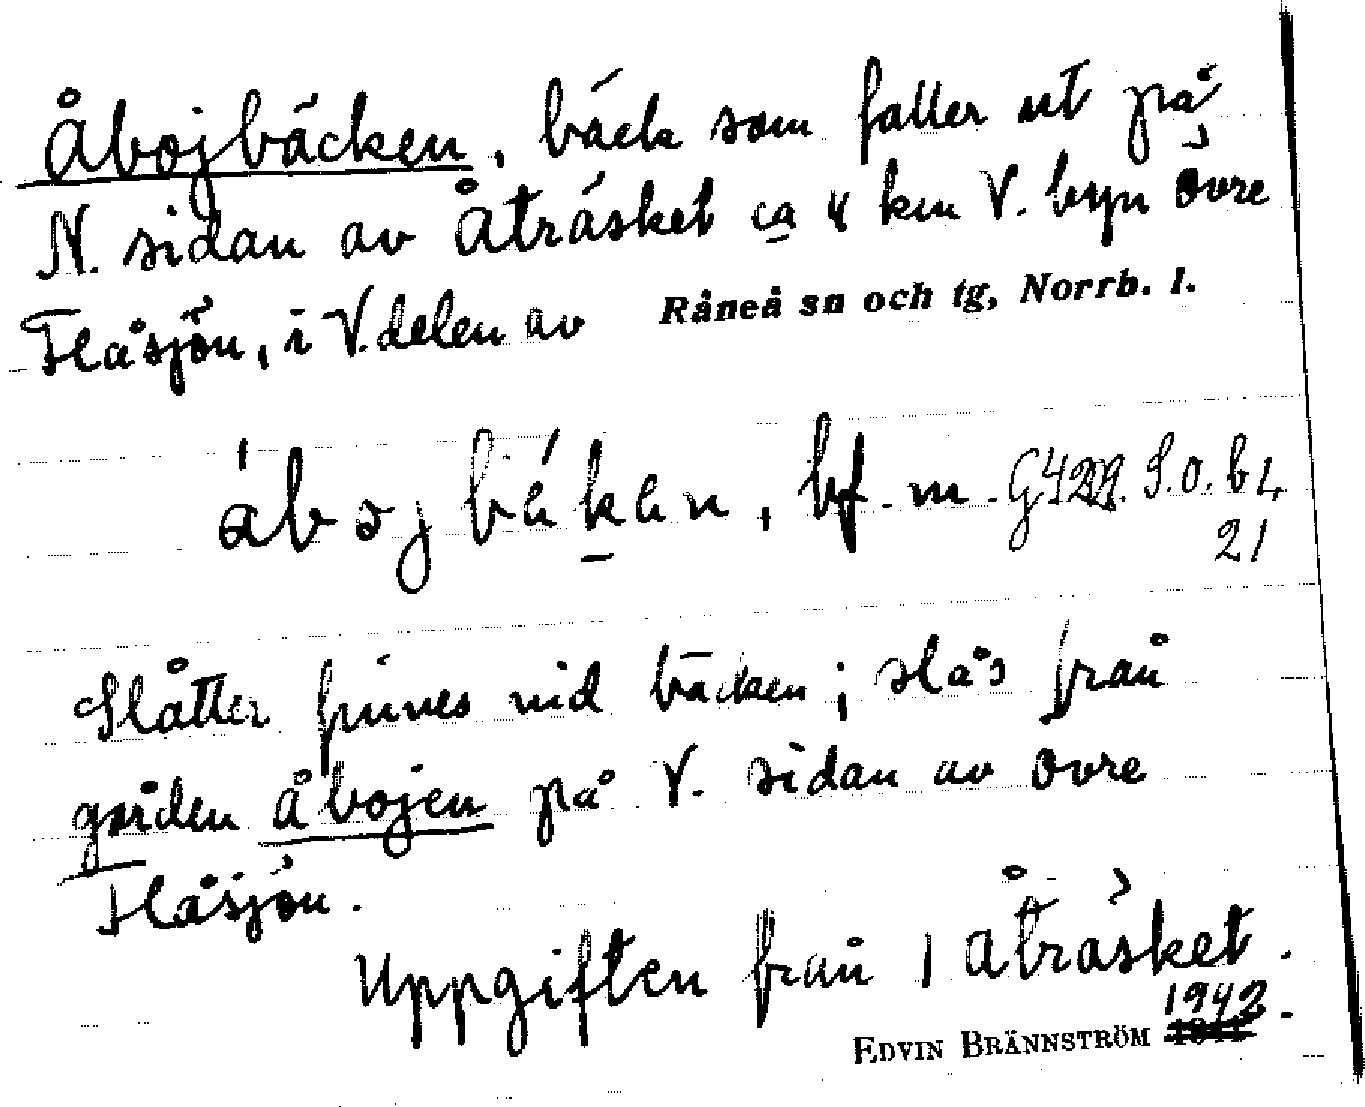 Åbojbäcken, bäck som faller ut på
N. sidan av Åträsket ca 4 km V. byn Övre
Flåsjön, i V. delen av Råneå sn och tg, Norrb. l.
bf. m. S.O. b 4
21
Slåtter finnes vid bäcken; slås från
gården Åbojen på V. sidan av Övre
Flåsjön.
Uppgiften från 1 Åträsket.
EDVIN BRÄNNSTRÖM 1942.